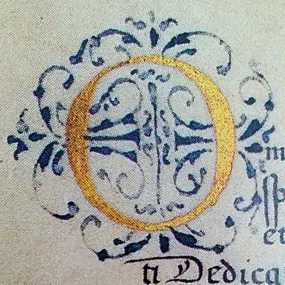 O
m
ſp
et
ti Dedica